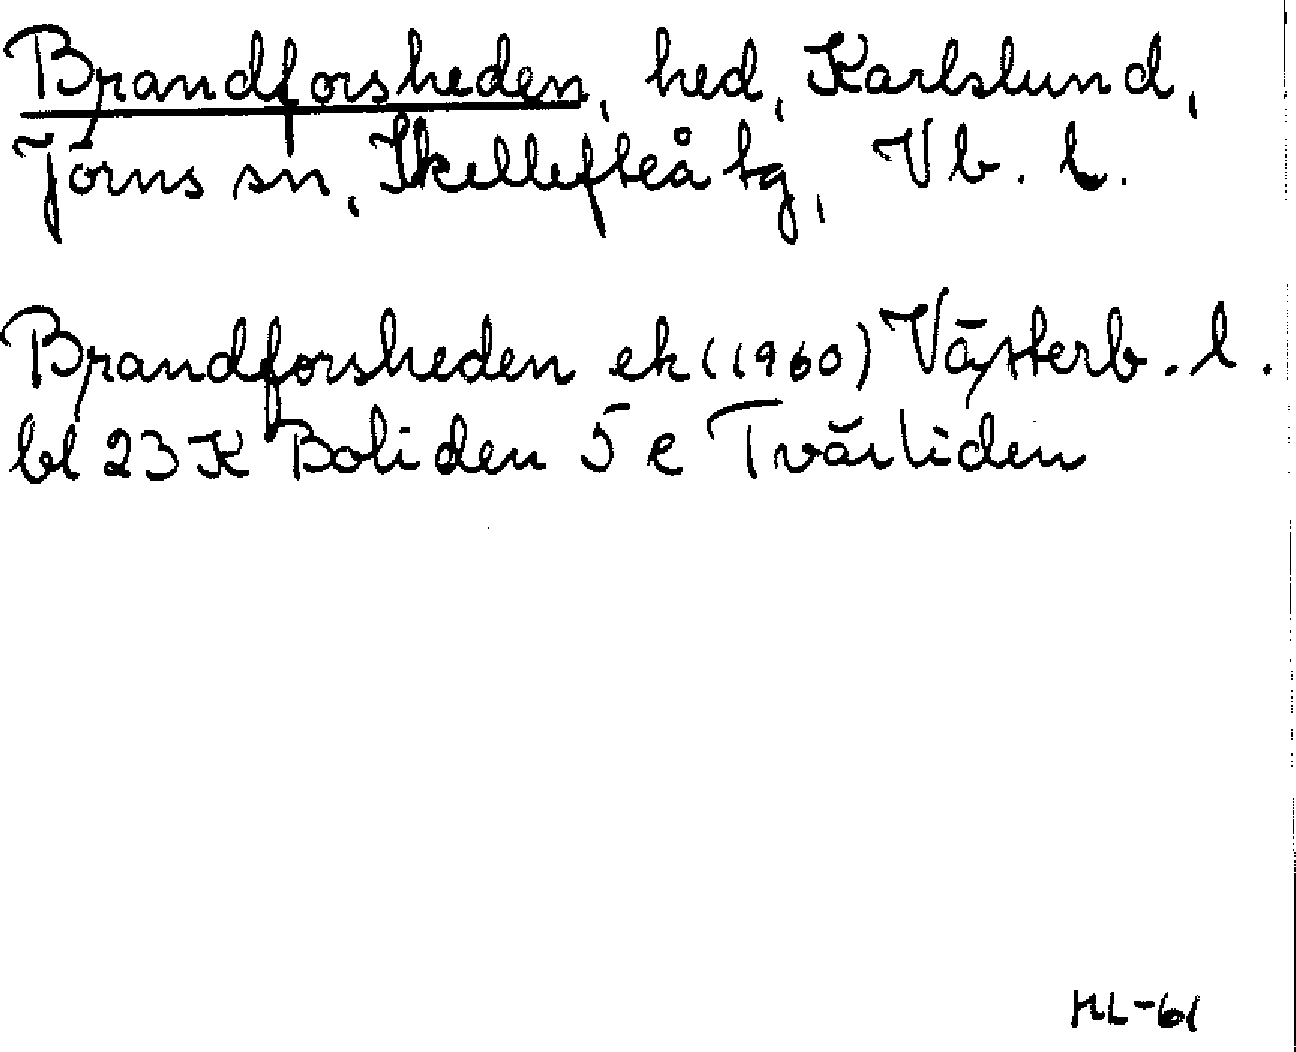 Brandforsheden, hed, Karlslund,
Jörns sn, Skellefteå tg, Vb. l.
Brandforsheden ek (1960) Västerb. l.
bl 23 K Boliden 5 e Tvärliden
HL-61